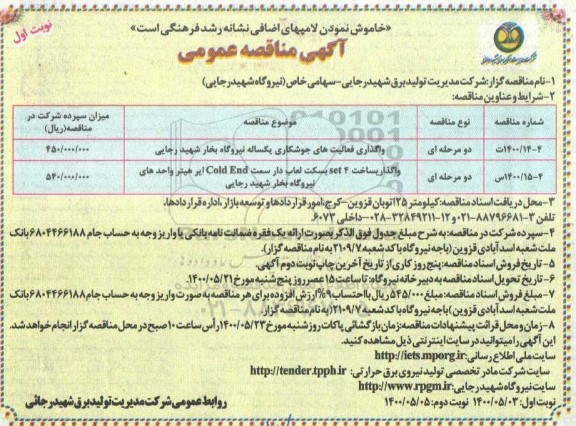 «خاموش نمودن لامپهای اضافی نشانه رشد فرهنگی است»
نوبت اول
آگهی مناقصه عمومی
۱-نام مناقصه گزار: شرکت مدیریت تولید برق شهید رجایی-سهامی خاص (نیروگاه شهید رجایی)
۲-شرایط و عناوین مناقصه:
شماره مناقصه نوع مناقصه موضوع مناقصه میزان سپرده شرکت در مناقصه(ریال)
۱۴۰۰/۱۴-۴ت دو مرحله ای واگذاری فعالیت های جوشکاری یکساله نیروگاه بخار شهید رجایی ۴۵۰/۰۰۰/۰۰۰
۱۴۰۰/۱۵-۴س دو مرحله ای واگذاری ساخت ۴ set بسکت لعاب دار سمت Cold End ایر هیتر واحد های
نیروگاه بخار شهید رجایی ۵۴۰/۰۰۰/۰۰۰
۳-محل دریافت اسناد مناقصه: کیلومتر ۲۵ اتوبان قزوین-کرج، امور قراردادها و توسعه بازار، اداره قراردادها،
تلفن ۳-۸۸۷۹۶۶۸۱-۰۲۱ و ۱۲-۳۲۸۴۹۲۱۱-۰۲۸-داخلی ۶۰۷۳.
۴-سپرده شرکت در مناقصه: به شرح مبلغ جدول فوق الذکر بصورت ارائه یک فقره ضمانت نامه بانکی یا واریز وجه به حساب جام ۶۸۰۴۴۶۶۱۸۸ بانک
ملت شعبه اسدآبادی قزوین (باجه نیروگاه با کد شعبه ۲۱۰۹/۷) به نام مناقصه گزار.
۵-تاریخ فروش اسناد مناقصه: پنج روز کاری از تاریخ آخرین چاپ نوبت دوم آگهی.
۶-تاریخ تحویل اسناد مناقصه به دبیرخانه نیروگاه: تا ساعت ۱۵ عصر روز پنج شنبه مورخ ۱۴۰۰/۰۵/۲۱.
۷-مبلغ فروش اسناد مناقصه: مبلغ ۵۴۵/۰۰۰ ریال با احتساب ۹٪ ارزش افزوده برای هر مناقصه به صورت واریز وجه به حساب جام ۶۸۰۴۴۶۶۱۸۸ بانک
ملت شعبه اسدآبادی قزوین (باجه نیروگاه با کد شعبه ۲۱۰۹/۷) به نام مناقصه گزار.
۸-زمان و محل قرائت پیشنهادات مناقصه: زمان بازگشائی پاکات روز شنبه مورخ ۱۴۰۰/۰۵/۲۳ رأس ساعت ۱۰ صبح در محل مناقصه گزار انجام خواهد شد.
این آگهی را میتوانید در سایت اینترنتی ذیل مشاهده کنید.
سایت ملی اطلاع رسانی: http://iets.mporg.ir
سایت شرکت مادر تخصصی تولید نیروی برق حرارتی: http://tender.tpph.ir
سایت نیروگاه شهید رجایی: http://www.rpgm.ir
نوبت اول: ۱۴۰۰/۰۵/۰۳ نوبت دوم: ۱۴۰۰/۰۵/۰۵
روابط عمومی شرکت مدیریت تولید برق شهید رجائی